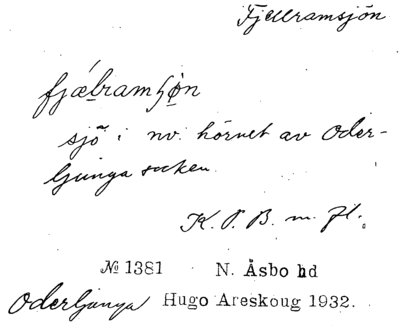 Fjellramsjön
fjǽbramʃø̀n
sjö i nv. hörnet av Oder-
ljunga socken.
K. P. B. m. fl.
№ 1381 N. Åsbo hd
Oderljunga Hugo Areskoug 1932.